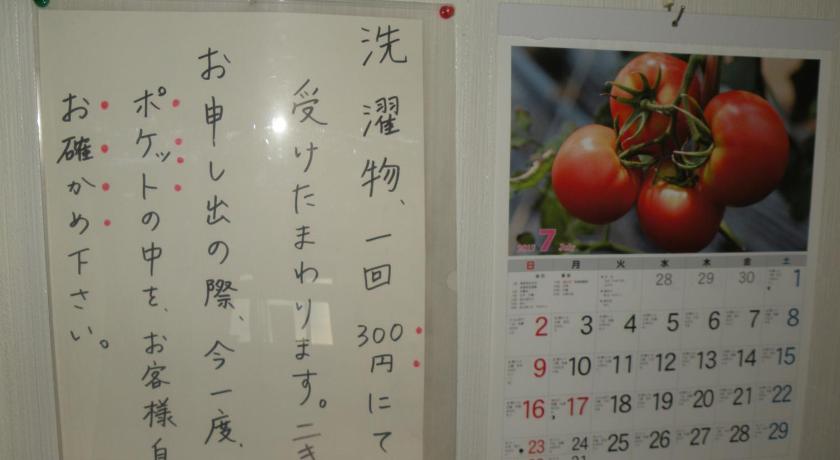 洗濯物、一回300円にて
受けたまわります。
お申し出の際、今一度、
ポケットの中を、お客様
お確かめ下さい。
7 July
日 月 火 水 木 金 土
28 29 30 1
2 3 4 5 6 7 8
9 10 11 12 13 14 15
16 17 18 19 20 21 22
23 24 25 26 27 28 29
31